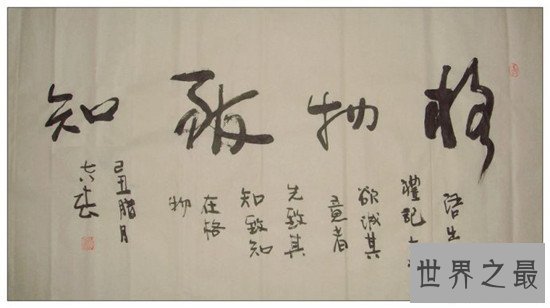 格物致知
语出
禮記
欲诚其
意者
先致其
知致知
在格
物
己丑腊月
世界之最